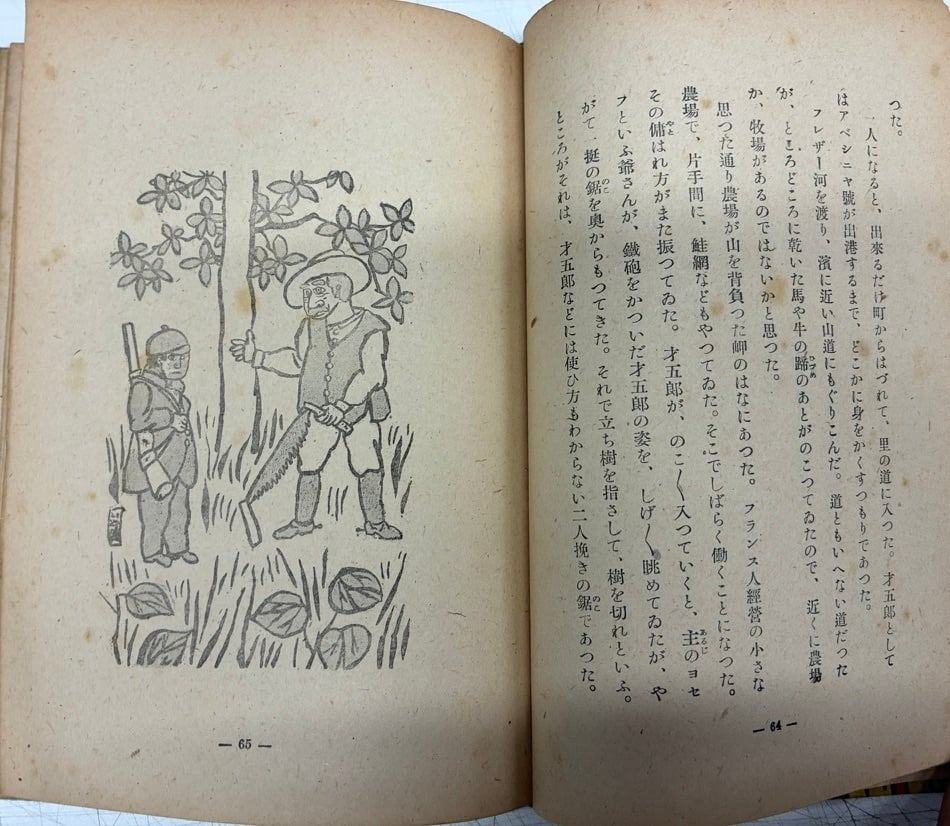 つた。
一人になると、出來るだけ町からはづれて、里の道に入つた。才五郎として
はアベシニヤ號が出港するまで、どこかに身をかくすつもりであつた。
フレザー河を渡り、濱に近い山道にもぐりこんだ。道ともいへない道だつた
が、ところどころに乾いた馬や牛の蹄のあとがのこつてゐたので、近くに農場
か、牧場があるのではないかと思つた。
思つた通り農場が山を背負つた岬のはなにあつた。フランス人經營の小さな
農場で、片手間に、鮭網などもやつてゐた。そこでしばらく働くことになつた。
その傭はれ方がまた振つてゐた。才五郎が、のこ〳〵入つていくと、主のヨセ
フといふ爺さんが、鐵砲をかついだ才五郎の姿を、しげ〳〵眺めてゐたが、や
がて一挺の鋸を奥からもつてきた。それで立ち樹を指さして、樹を切れといふ。
ところがそれは、才五郎などには使ひ方もわからない二人挽きの鋸であつた。
— 64 —
— 65 —